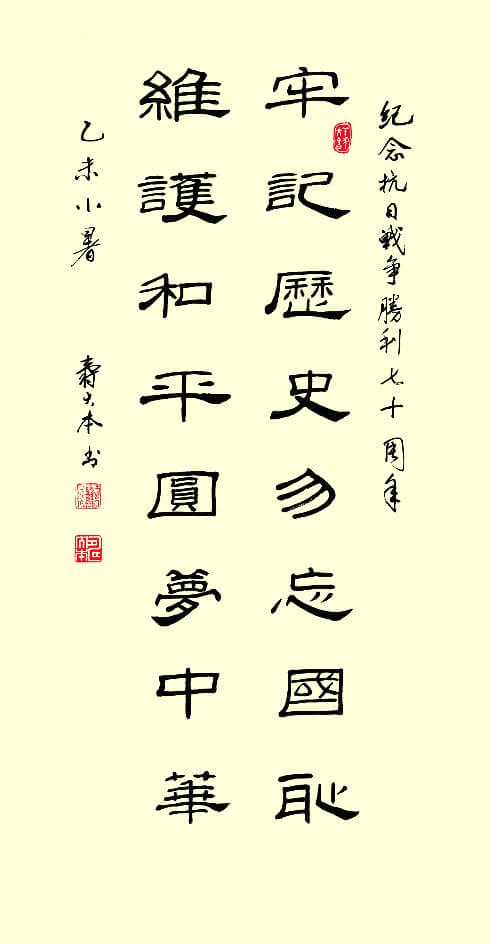 紀念抗日戰爭勝利七十周年
牢記歷史勿忘國恥
維護和平圓夢中華
乙未小暑
壽大本书